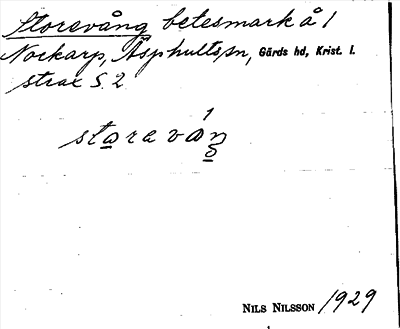 Storevång betesmark å 1
Nockarp, Äsphults sn, Gärds hd, Krist. l.
strax S. 2
stareváŋ
NILS NILSSON 1929